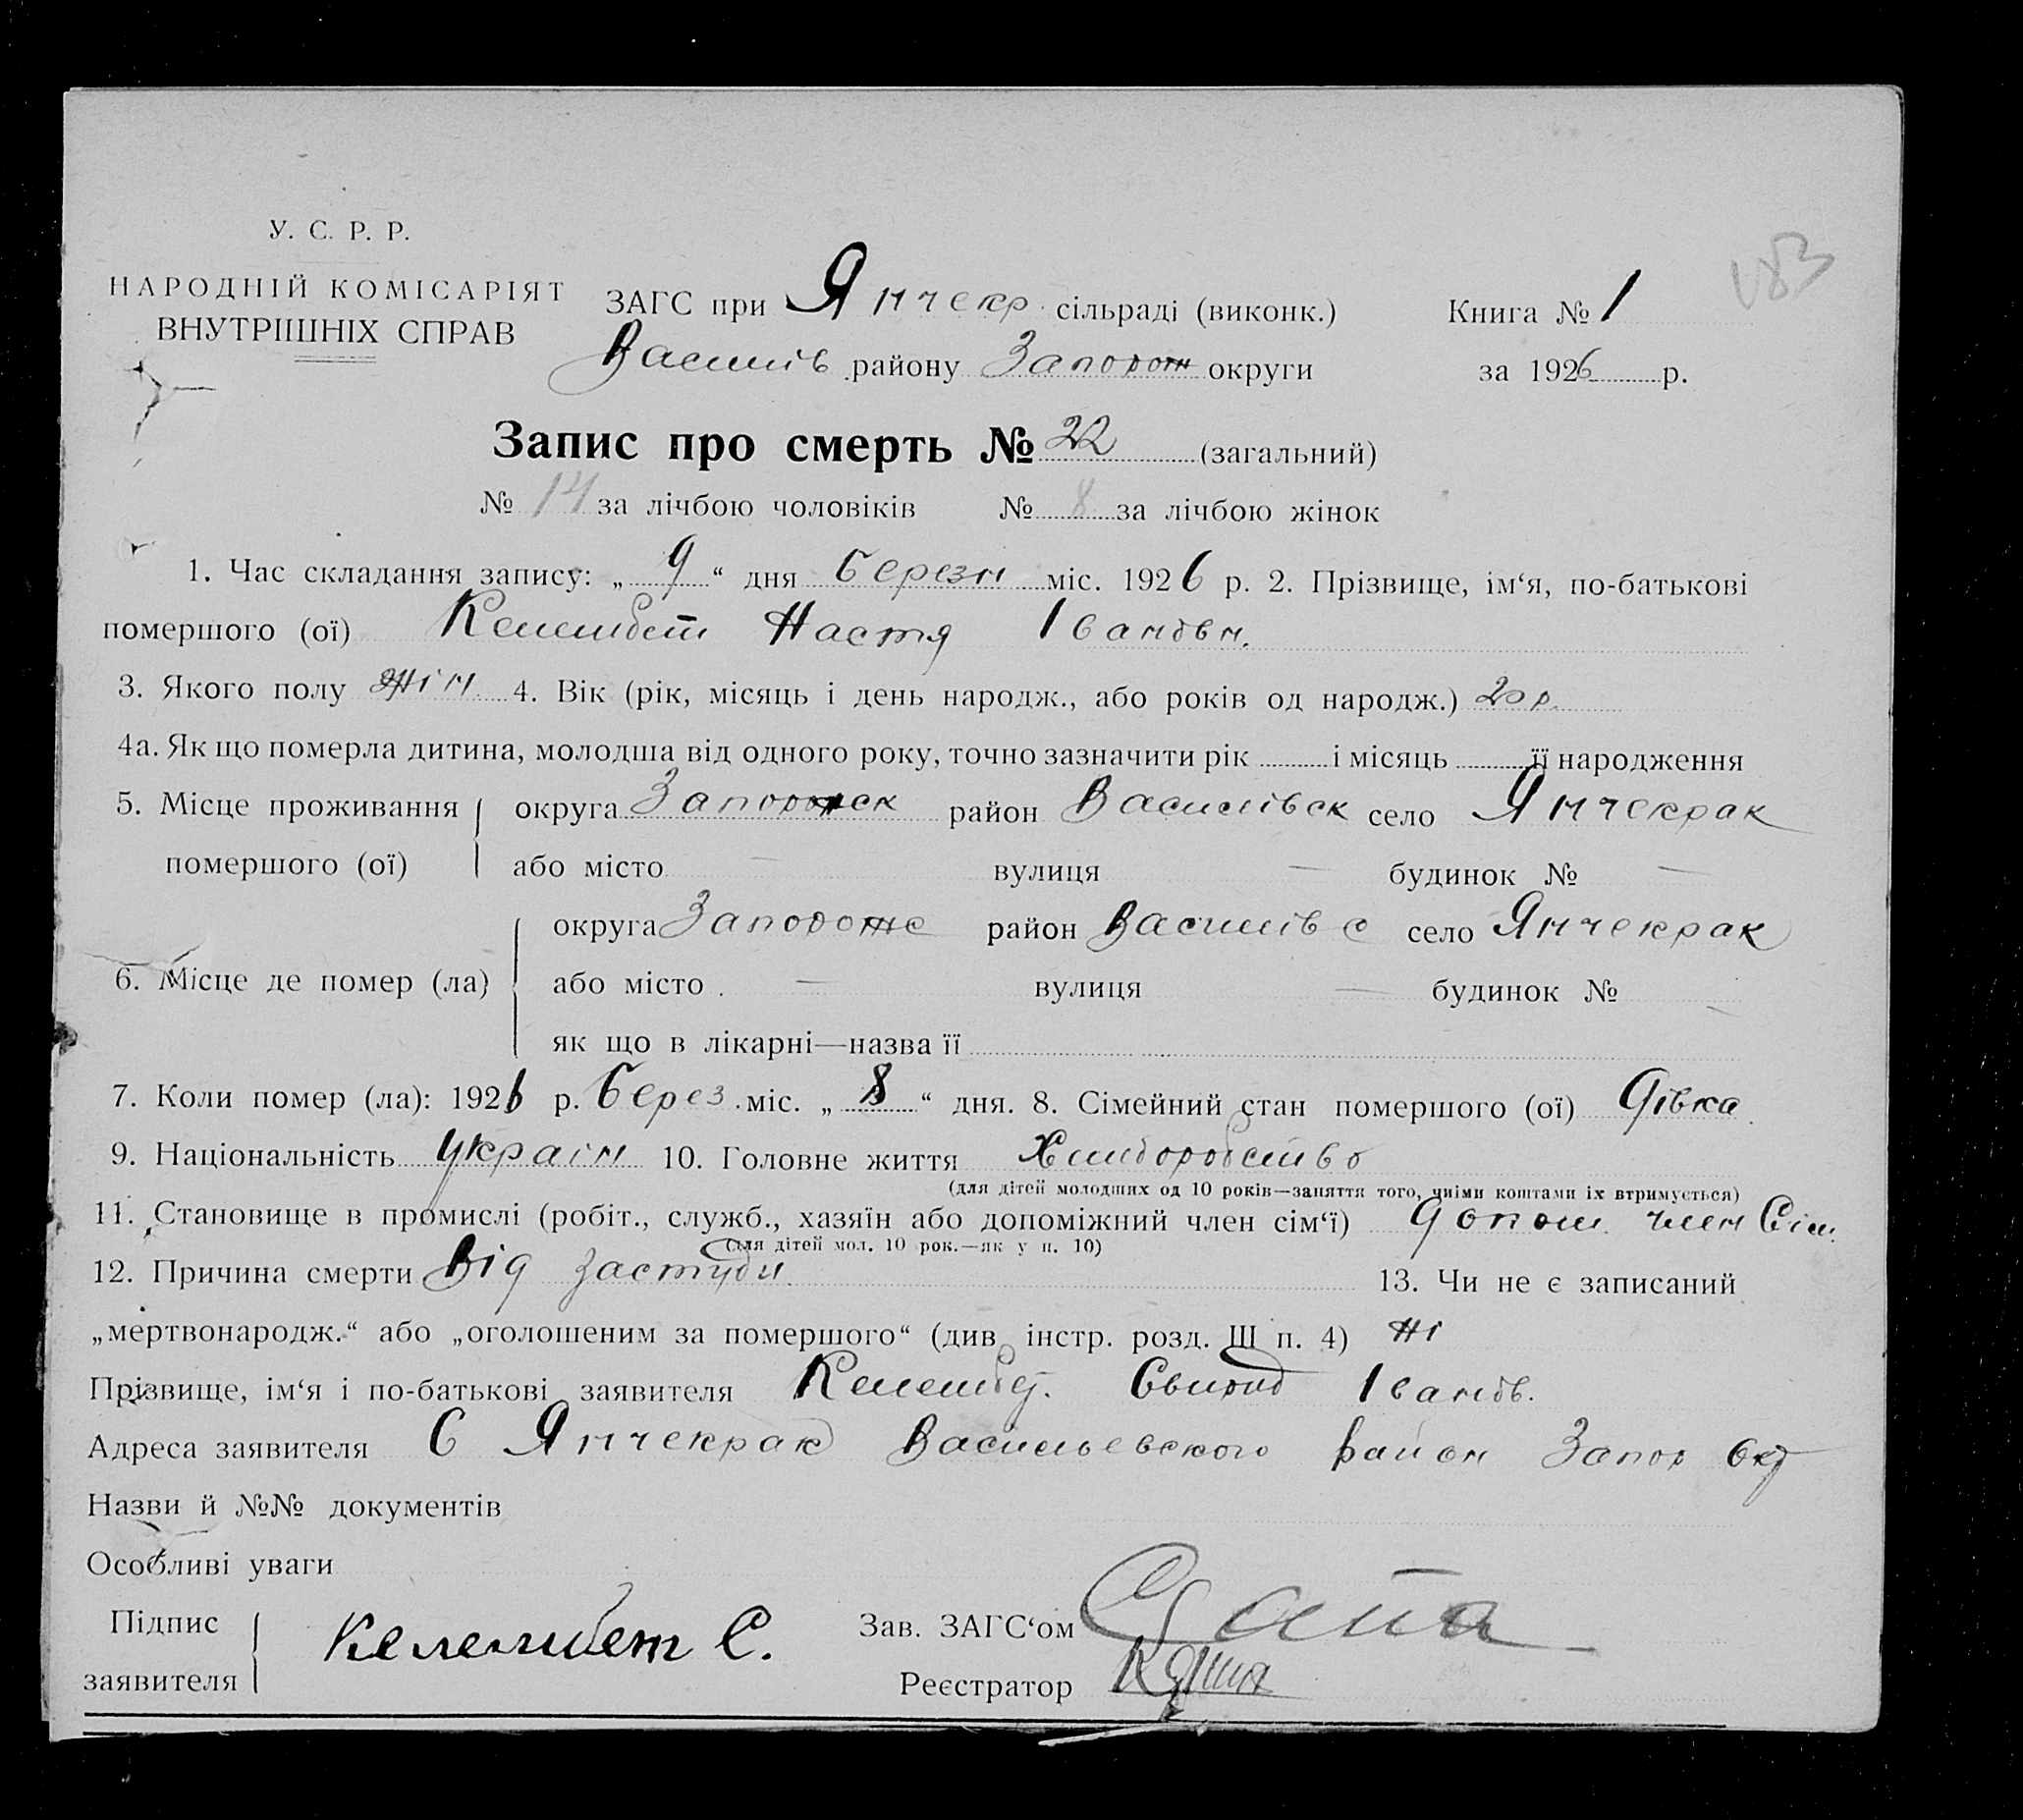 У. С. Р. Р.
НАРОДНІЙ КОМІСАРІЯТ
ВНУТРІШНІХ СПРАВ
ЗАГС при Янчекр сільраді (виконк.) Книга № 1
Василів району Запорож округи за 1926 р.
183
Запис про смерть № 22 (загальний)
№ 14 за лічбою чоловіків № 8 за лічбою жінок
1. Час складання запису: „ 9 “ дня березн міс. 1926 р. 2. Прізвище, ім‘я, по-батькові
помершого (ої) Келембет Настя Івановн.
3. Якого полу жін. 4. Вік (рік, місяць і день народж., або років од народж.) 20 р.
4а. Як що померла дитина, молодша від одного року, точно зазначити рік і місяць її народження
5. Місце проживання помершого (ої) округа Запорожск район Василівск село Янчекрак
або місто — вулиця — будинок № —
6. Місце де помер (ла) округа Запорожс район Василівс село Янчекрак
або місто — вулиця — будинок № —
як що в лікарні—назва її
7. Коли помер (ла): 1926 р. берез. міс. „ 8 “ дня. 8. Сімейний стан помершого (ої) дівка.
9. Національність україн 10. Головне життя Хлиборобство
(для дітей молодших од 10 років—заняття того, чиїми коштами їх втримується)
11. Становище в промислі (робіт., служб., хазяїн або допоміжний член сім‘ї) допом. член Сім.
(для дітей мол. 10 рок.—як у п. 10)
12. Причина смерти Від застуди. 13. Чи не є записаний
„мертвонародж.“ або „оголошеним за помершого“ (див. інстр. розд. Ш п. 4) ні
Прізвище, ім‘я і по-батькові заявителя Келембет. Іванов.
Адреса заявителя С Янчекрак Васильевского район Запор Окр
Назви й №№ документів
Особливі уваги
Підпис заявителя Келембет С.
Зав. ЗАГС‘ом
Реєстратор